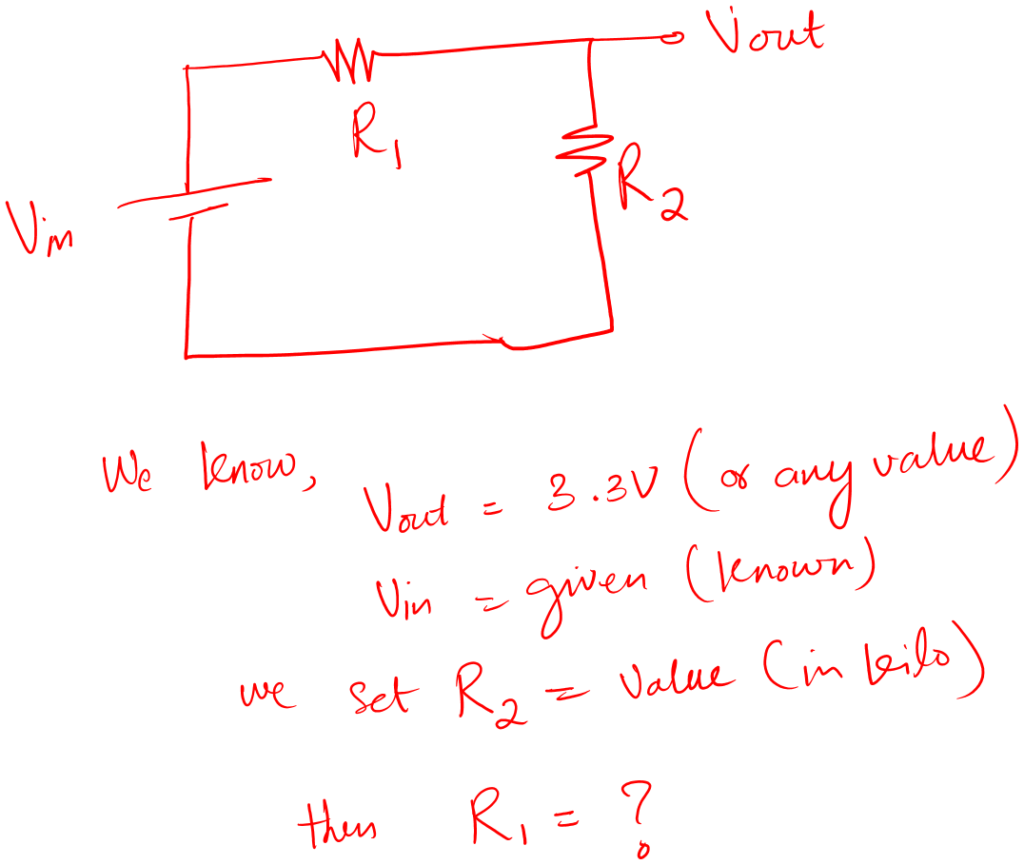 Vout
R1
R2
Vin
We know,
Vout = 3.3V (or any value)
Vin = given (known)
we set R2 = Value (in kilo)
then R1 = ?